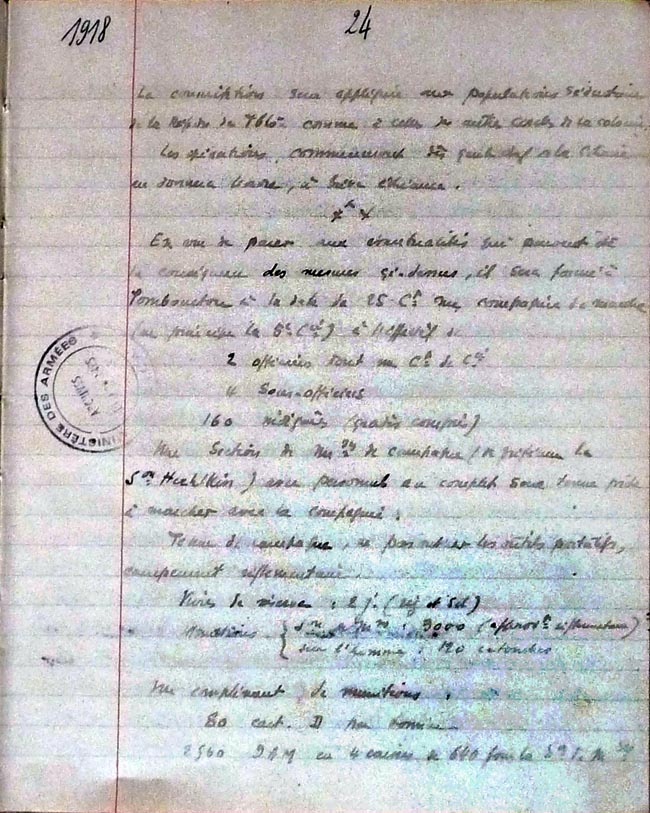 1918
24
La conscription sera appliquée aux populations sédentaires
de la Région de Tbtou comme à celles des autres cercles de la colonie.
Les opérations commenceront dès que le chef de la Colonie
en donnera l'ordre, à brève échéance.
En vue de parer aux éventualités qui peuvent être
la conséquence des mesures ci-dessus, il sera formé à
Tombouctou à la date du 25 Ct une compagnie de marche
(en principe la 5e Cie) à l'effectif de
2 officiers dont un Ct de Cie
4 Sous-officiers
160 indigènes (gradés compris)
Une Section de de campagne (en principe la
Son Hotchkiss) avec personnel au complet sera tenue prête
à marcher avec la compagnie.
Tenue de campagne, les outils portatifs,
campement réglementaire.
Vivres de réserve : 2 j. (et Sel)
Munitions 9000 (approvt réglementaire)
sur l'homme : 120 cartouches
Un complément de munitions :
80 cart. D par homme
2560 DAM en 4 caisses de 640 pour la
MINISTÈRE DES ARMÉES